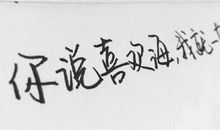 你说喜欢海,我就